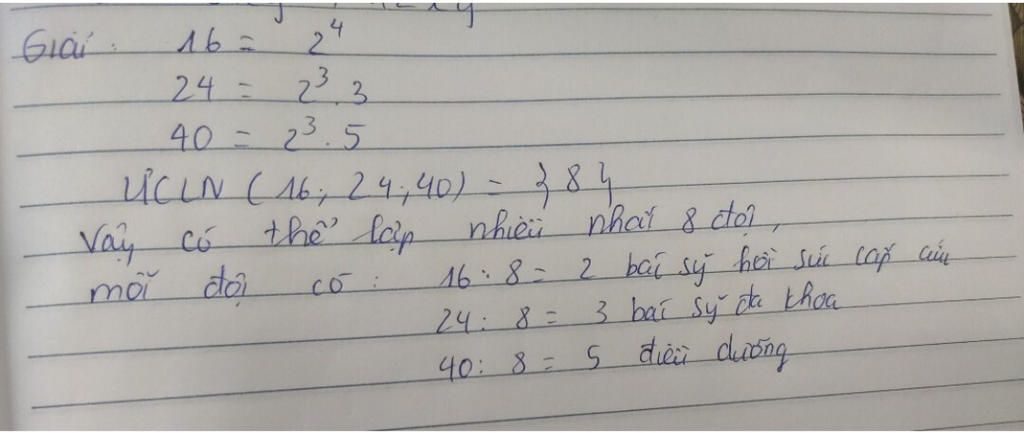 Giải: 16 = 2⁴
24 = 2³.3
40 = 2³.5
ƯCLN (16; 24; 40) = {8}
Vậy có thể lập nhiều nhất 8 đội,
mỗi đội có: 16:8 = 2 bác sỹ hồi sức cấp cứu
24: 8 = 3 bác sỹ đa khoa
40: 8 = 5 điều dưỡng